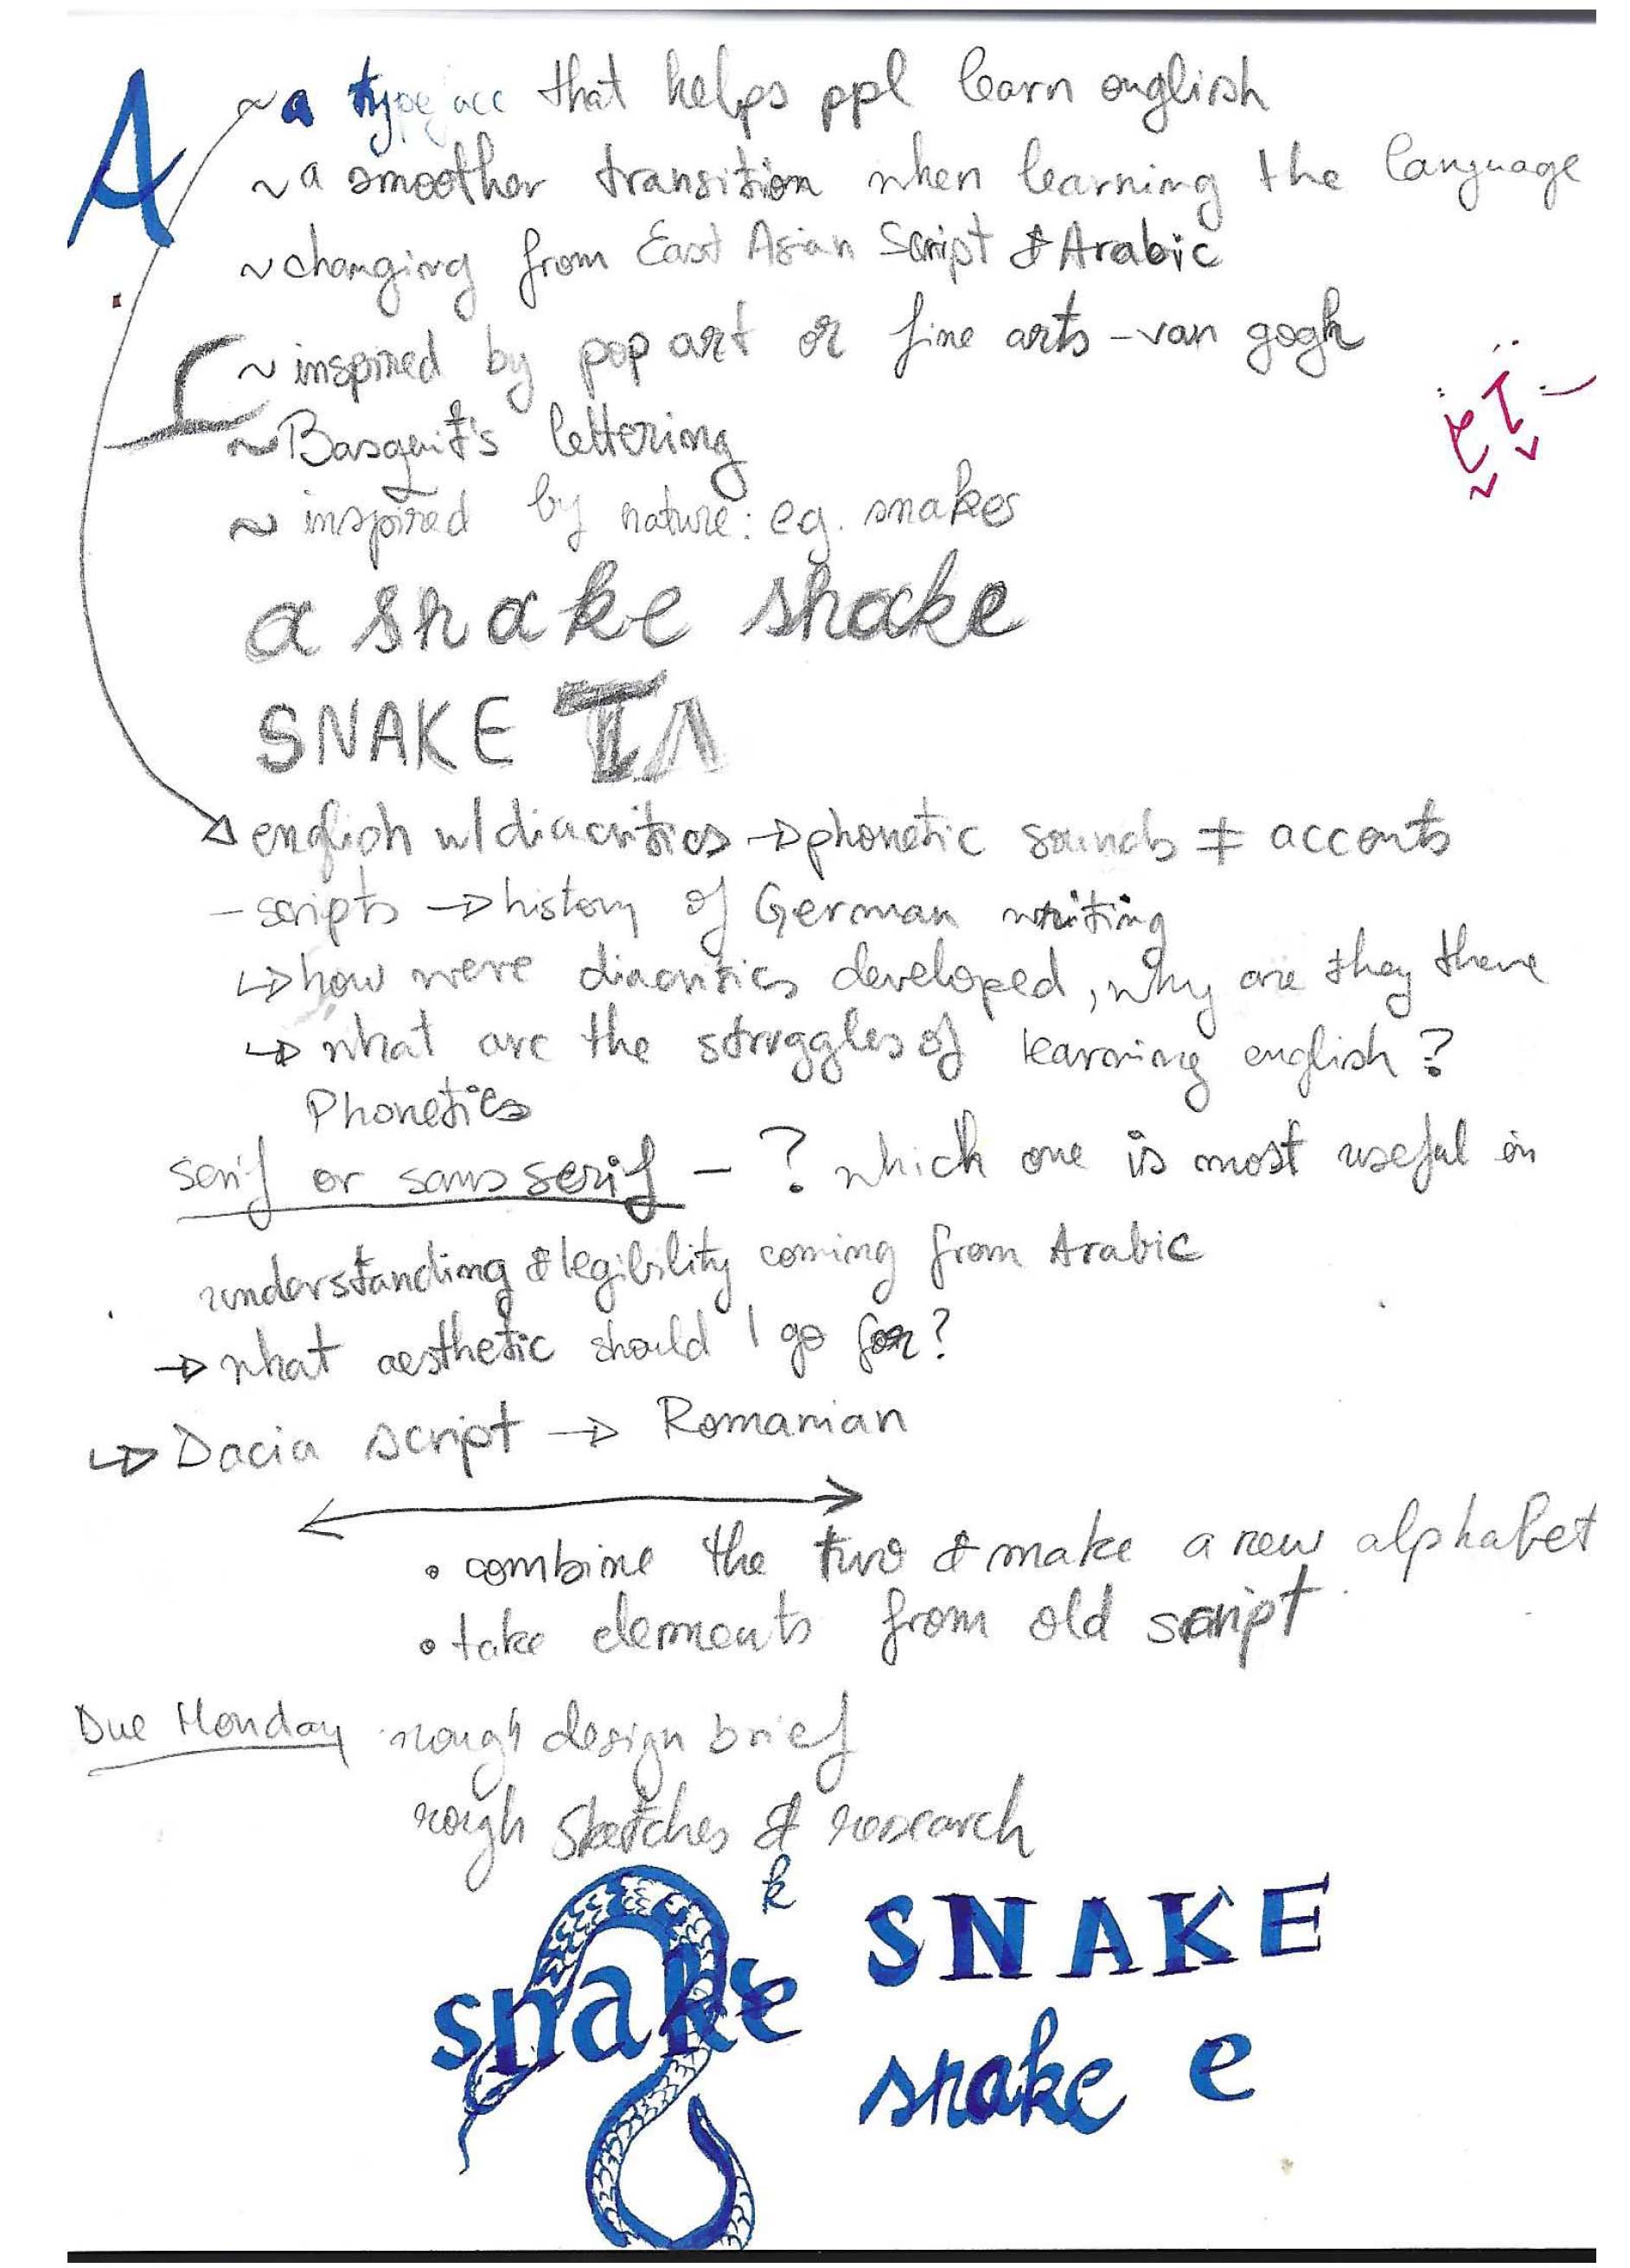 A
~a typeface that helps ppl learn english
~a smoother transition when learning the language
~changing from East Asian Script & Arabic
~inspired by pop art or fine arts - van gogh
~Basquit's lettering
~inspired by nature: eg. snakes
a snake snake
SNAKE
english w/diacritics → phonetic sounds ≠ accents
- scripts → history of German writing
↳ how were diacritics developed, why are they there
↳ what are the struggles of learning english?
Phonetics
serif or sans serif - ? which one is most useful in
understanding & legibility coming from Arabic
→ what aesthetic should I go for?
↳ Dacia script → Romanian
• combine the two & make a new alphabet
• take elements from old script
Due Monday rough design brief
rough sketches & research
k
snake SNAKE
snake e